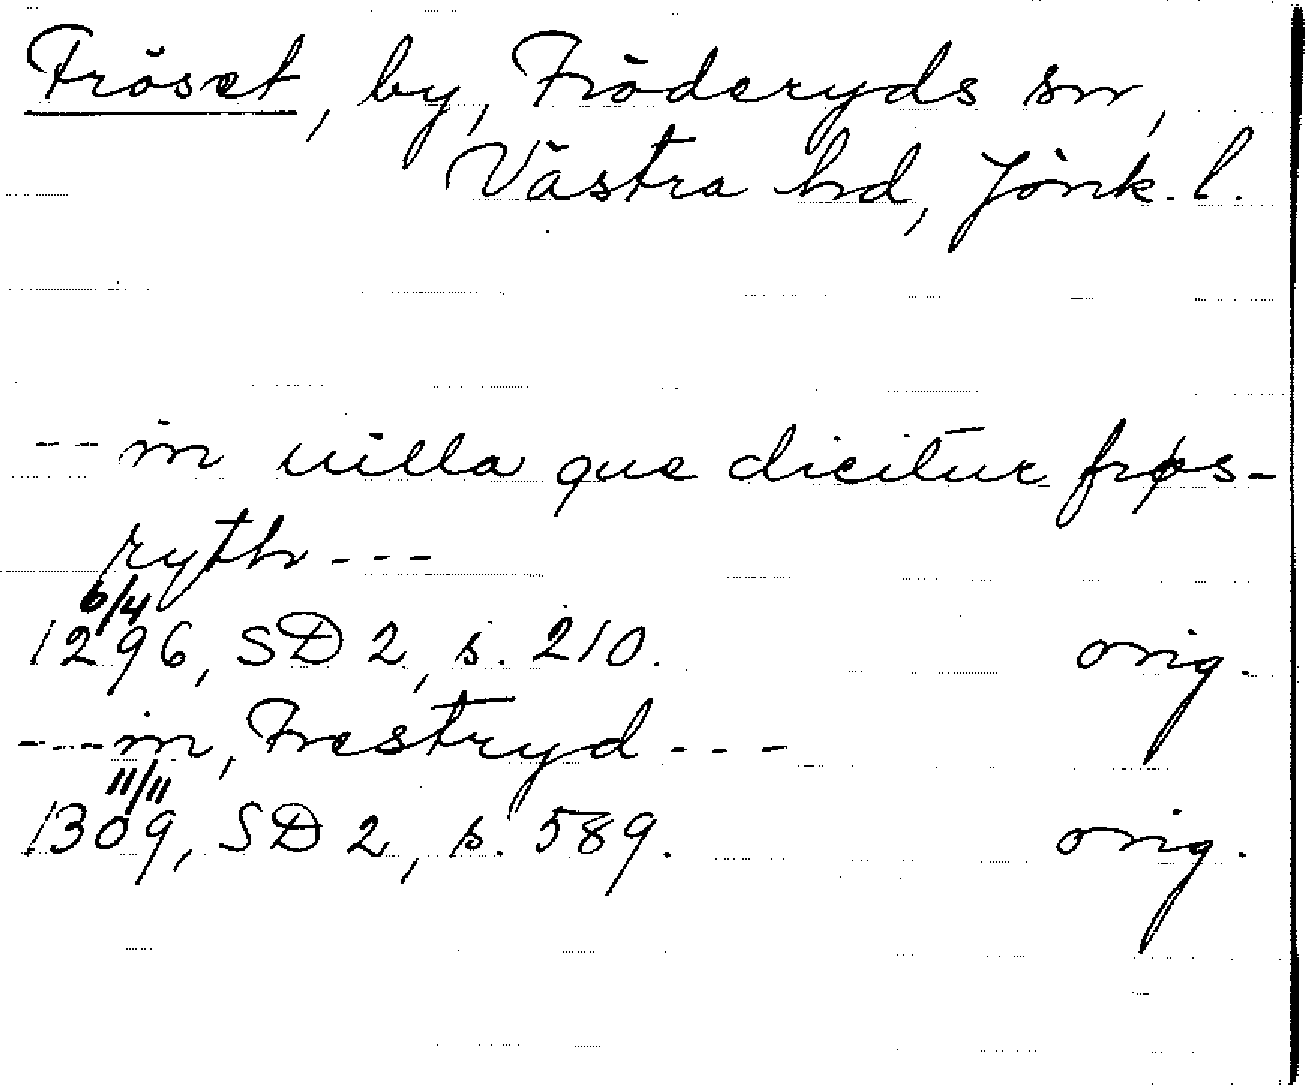 Fröset, by, Fröderyds sn,
Västra hd, Jönk. l.
-- in uilla que dicitur frøs-
ryth ---
6/4
1296, SD 2, s. 210. orig.
--- in, Frestryd ---
11/11
1309, SD 2, s. 589. orig.